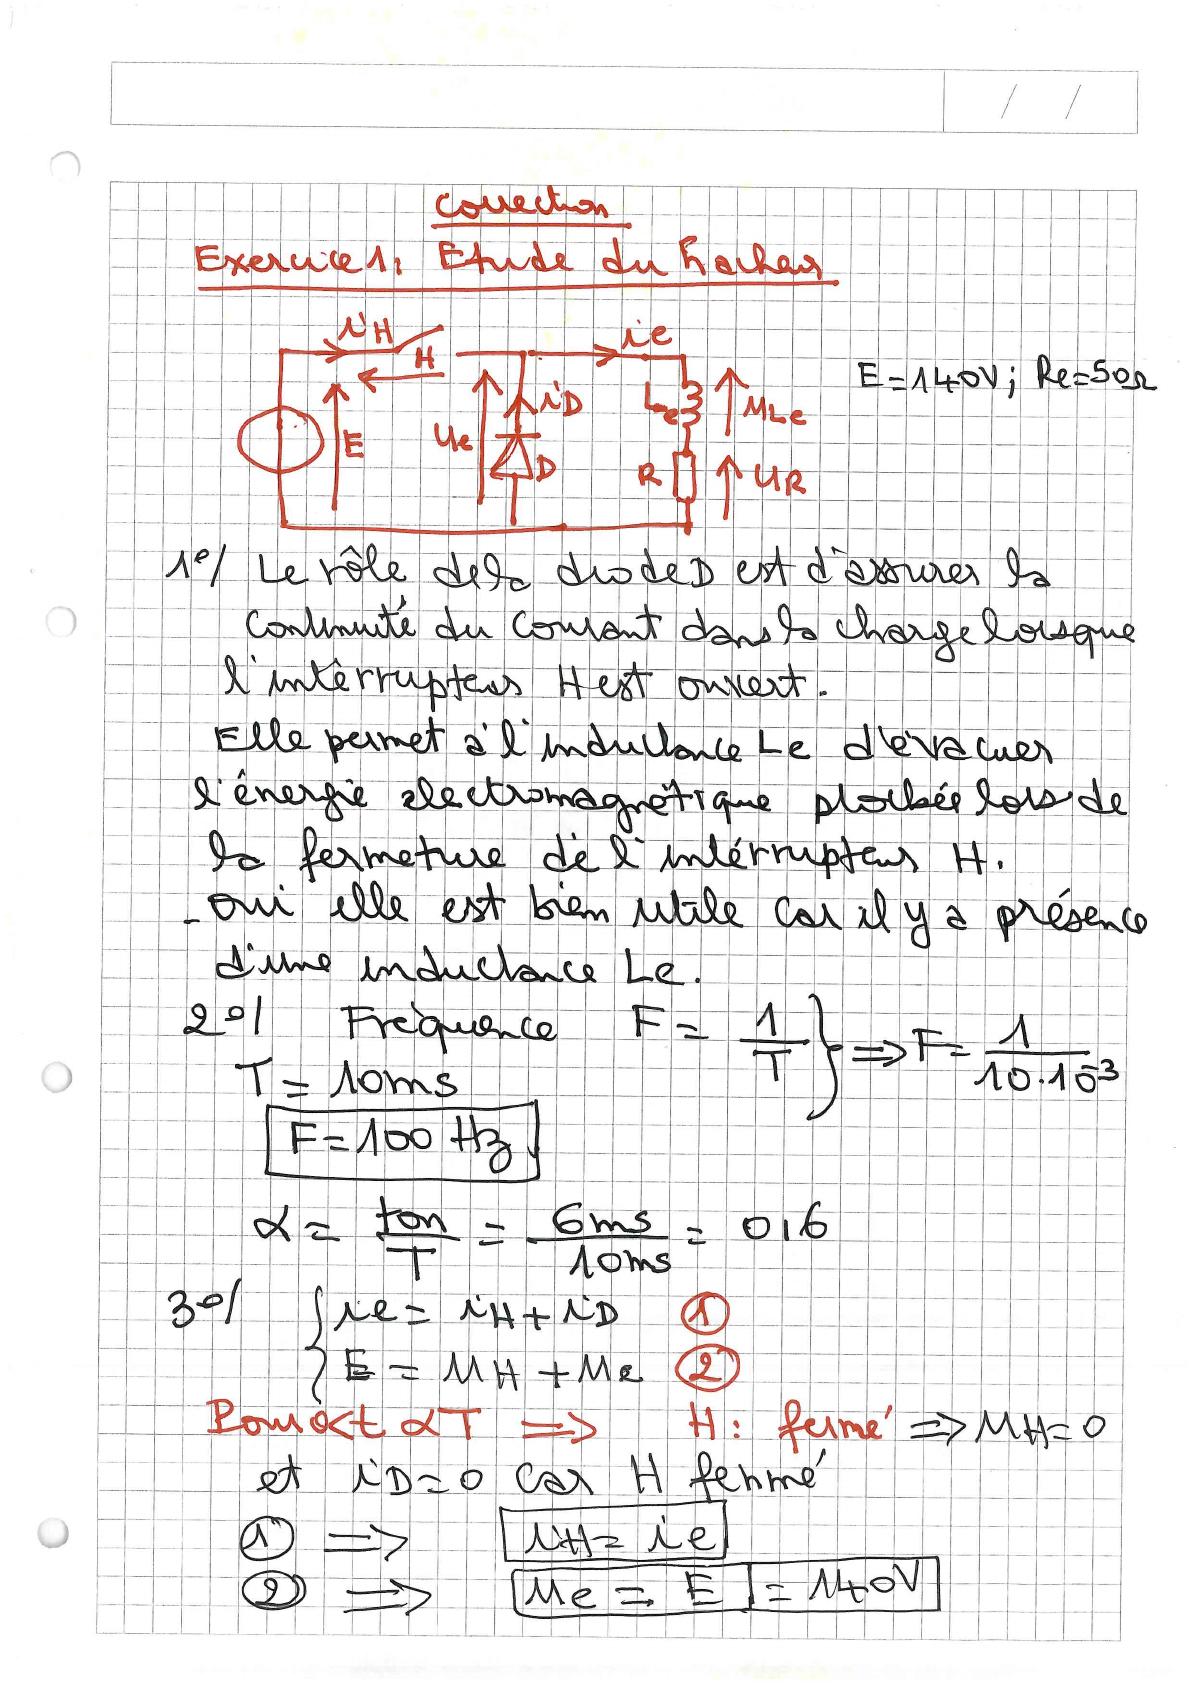 / /
Correction
Exercice 1: Etude du hacheur
iH H ie
E=140V; Re=50Ω
E Ue iD D Le uLe R UR
1°/ Le rôle de la diode D est d'assurer la
continuité du courant dans la charge lorsque
l'intérrupteur H est ouvert.
Elle permet à l'inductance Le d'évacuer
l'énergie electromagnétique stockée lors de
la fermeture de l'intérrupteur H.
- oui elle est bien utile car il y a présence
d'une inductance Le.
2°/ Fréquence F = 1/T } => F = 1/10.10⁻³
T = 10ms
F = 100 Hz
α = ton/T = 6ms/10ms = 0,6
3°/ { ie = iH + iD ①
E = uH + ue ②
Pour 0<t<αT => H: fermé => uH=0
et iD=0 car H fermé
① => iH = ie
② => ue = E = 140V